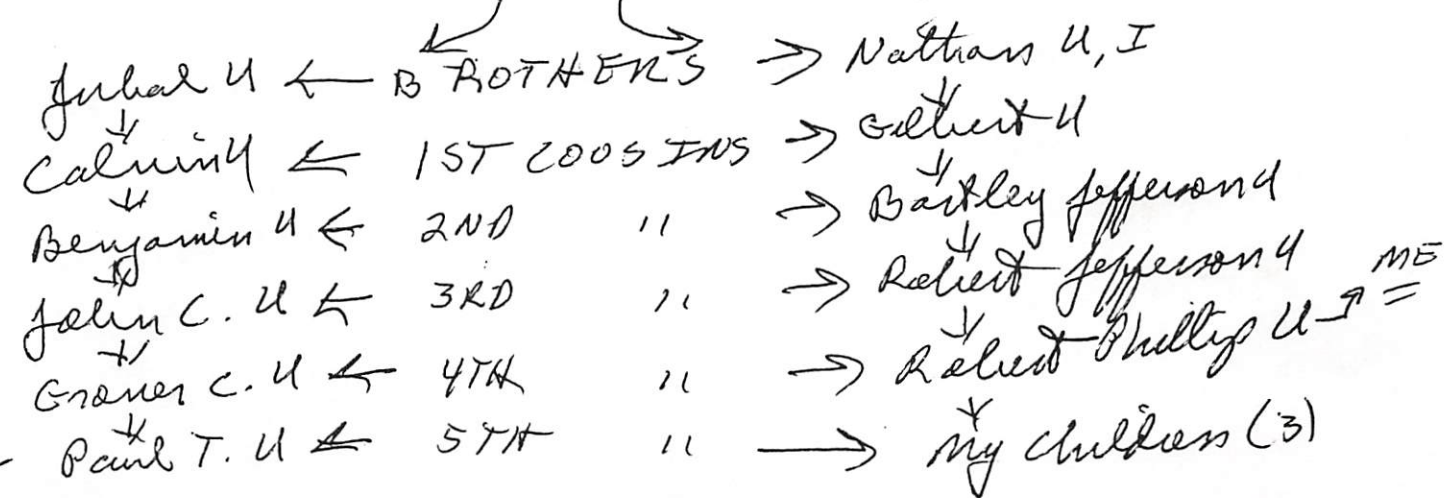 Jubal U ← BROTHERS → Nathan U, I
Calvin U ← 1ST COOSINS → Gilbert U
Benjamin U ← 2ND " → Bartley Jefferson U
John C. U ← 3RD " → Robert Jefferson U
Grover C. U ← 4TH " → Robert Phillip U → ME
Paul T. U ← 5TH " → My Children (3)